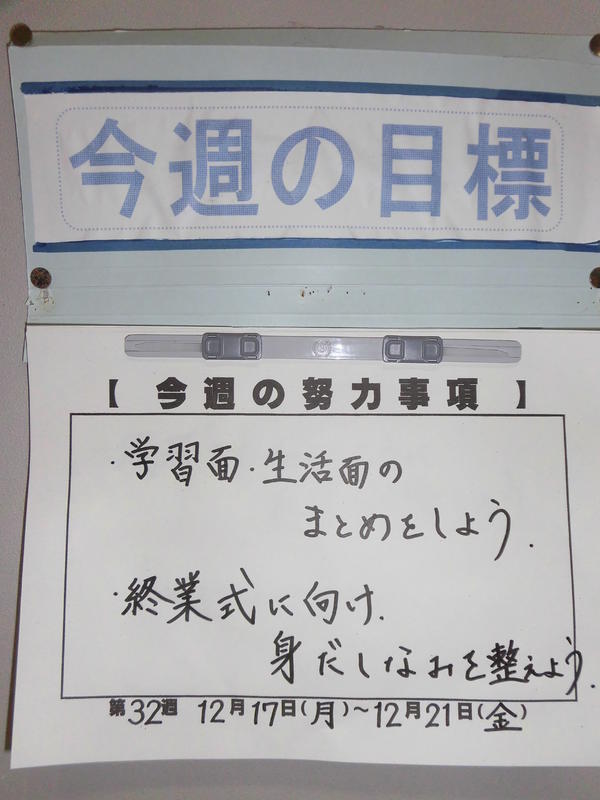 今週の目標
【 今週の努力事項 】
・学習面・生活面の
まとめをしよう.
・終業式に向け.
身だしなみを整えよう.
第32週 12月17日(月)~12月21日(金)